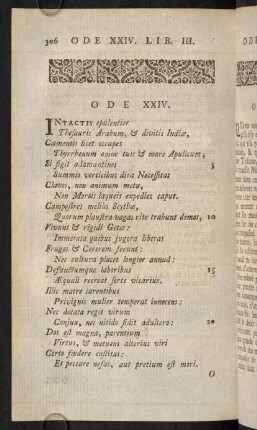 306 ODE XXIV. LIB. III.
ODE XXIV.
INTACTIS opulentior
Thesauris Arabum, & divitis Indiæ,
Cæmentis licet occupes
Tyrrhenum omne tuis & mare Apulicum,
Si figit adamantinos 5
Summis verticibus dira Necessitas
Clavos, non animum metu,
Non Mortis laqueis expedies caput.
Campestres melius Scythæ,
Quorum plaustra vagas rite trahunt domos, 10
Vivunt & rigidi Getæ:
Immetata quibus jugera liberas
Fruges & Cererem ferunt:
Nec cultura placet longior annuâ:
Defunctumque laboribus 15
Æquali recreat sorte vicarius.
Illic matre carentibus
Privignis mulier temperat innocens:
Nec dotata regit virum
Conjux, nec nitido fidit adultero: 20
Dos est magna, parentium
Virtus, & metuens alterius viri
Certo fœdere castitas:
Et peccare nefas, aut pretium est mori.
O